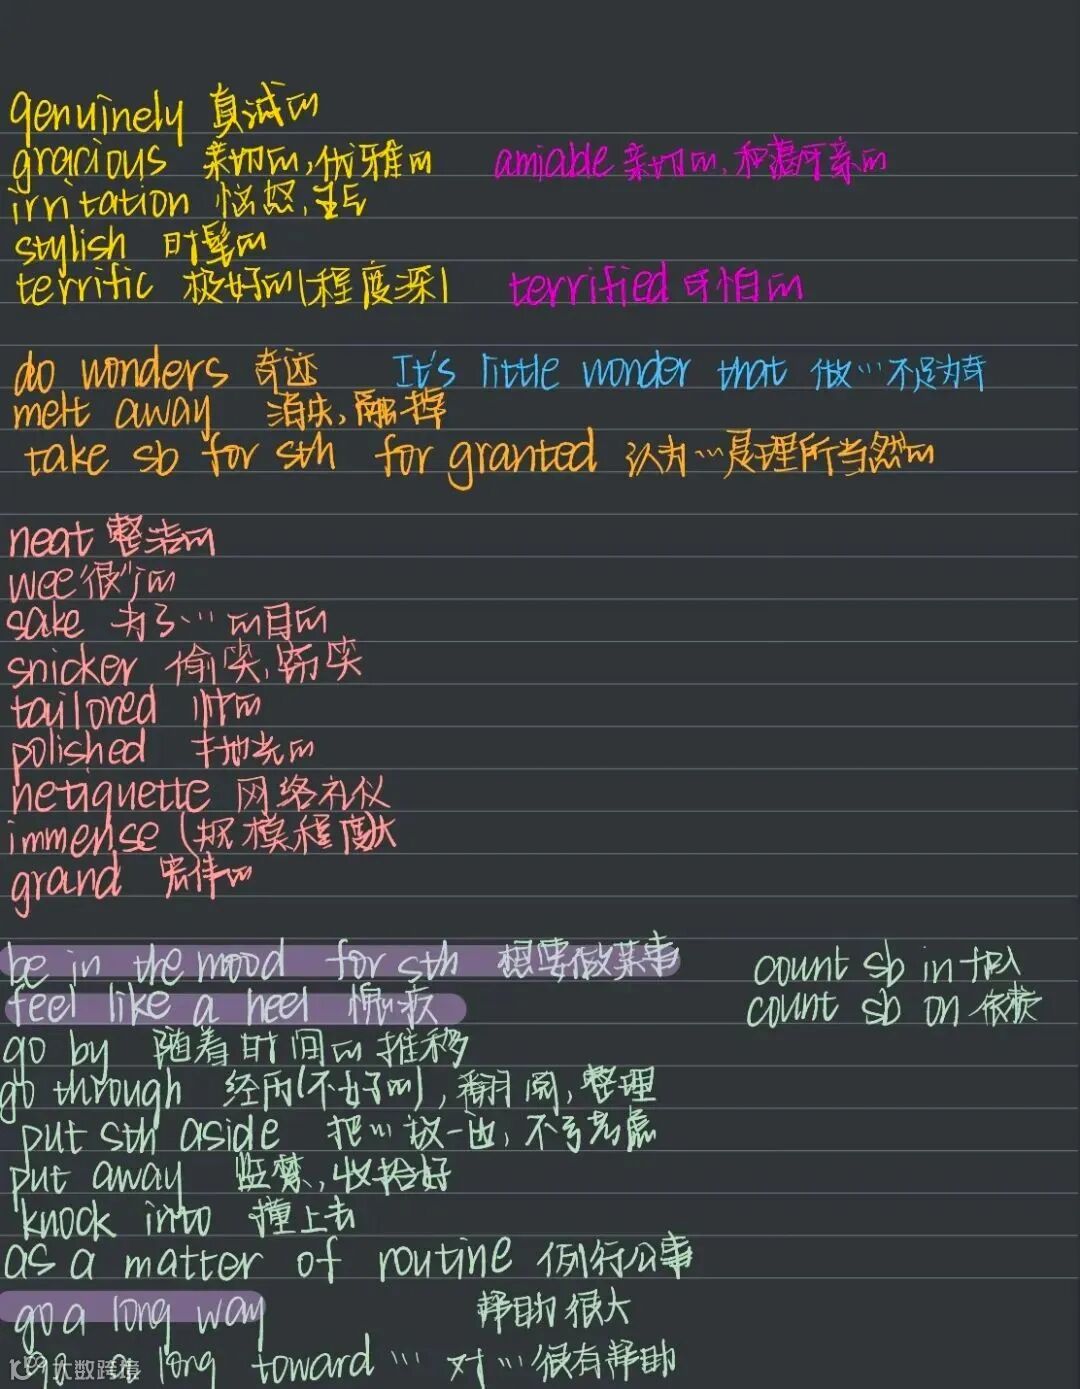 genuinely 真诚的
gracious 亲切的,优雅的 amiable 亲切的,和蔼可亲的
irritation 恼怒,生气
stylish 时髦的
terrific 极好的(程度深) terrified 可怕的
do wonders 奇迹 It's little wonder that 做…不足为奇
melt away 消失,融掉
take sb for sth for granted 认为…是理所当然的
neat 整洁的
wee 很小的
sake 为了…的目的
snicker 偷笑,窃笑
tailored
polished 抛光的
netiquette 网络礼仪
immense (规模程度)大
grand 宏伟的
be in the mood for sth 想要做某事
count sb in 加入
feel like a heel 愧疚
count sb on 依赖
go by 随着时间的推移
go through 经历(不好的),翻阅,整理
put sth aside 把…放一边,不予考虑
put away 监禁,收拾好
knock into 撞上去
as a matter of routine 例行公事
go a long way 帮助很大
go a long toward … 对…很有帮助
大数跨境